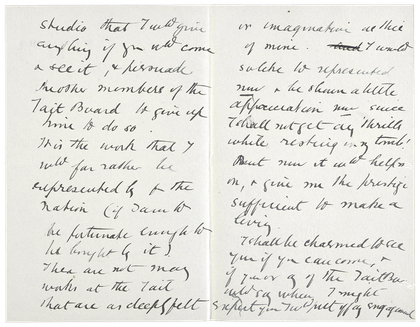 studio that I wld give
anything if you wld come
& see it, & persuade
the other members of the
Tait Board to give up
time to do so.
It is the work that I
wld far rather be
represented by to the
Nation (if I am to
be fortunate enough to
be bought by it).
There are not many
works at the Tait
that are as deeply felt
or imaginative as this
of mine. I would
so like to represented
now & be shown a little
appreciation now since
I shall not get any 'thrills'
while resting in my tomb!
But now it wld help me
on, & give me the prestige
sufficient to make a
living.
I shall be charmed to see
you if you can come, &
if you or any of the Tait Board
wld say when I might
expect you I wld put off any engagement